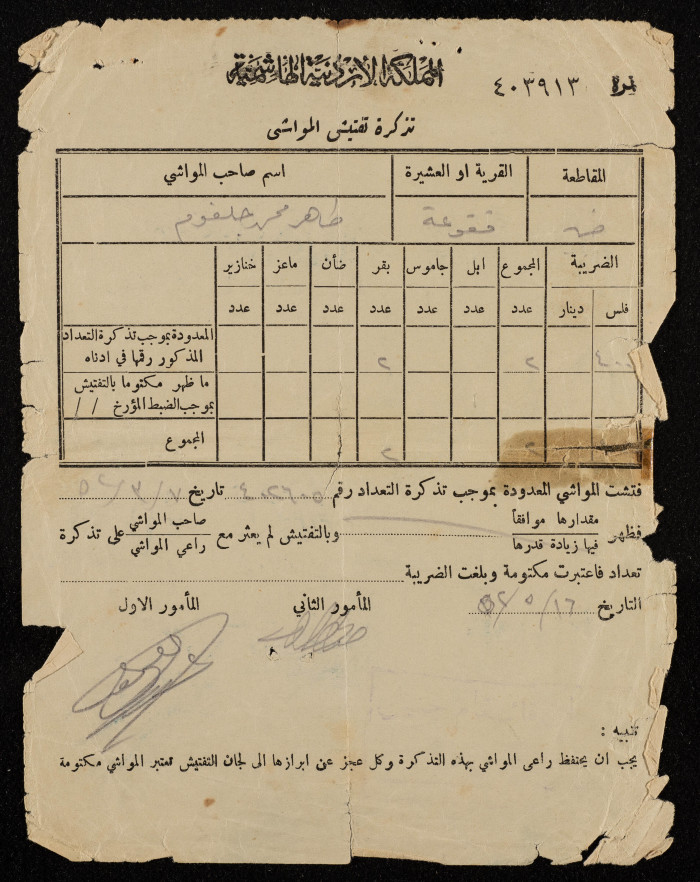 المملكة الأردنية الهاشمية
نمرة ٤٠٣٩١٣
تذكرة تفتيش المواشي
المقاطعة القرية او العشيرة اسم صاحب المواشي
فقوعة طاهر محمد جلغوم
الضريبة المجموع ابل جاموس بقر ضأن ماعز خنازير
فلس دينار عدد عدد عدد عدد عدد عدد عدد
المعدودة بموجب تذكرة التعداد
المذكور رقمها في ادناه ٢ ٢
ما ظهر مكتوما بالتفتيش
بموجب الضبط المؤرخ / /
المجموع ٢
فتشت المواشي المعدودة بموجب تذكرة التعداد رقم ٤٠٢٦٠٥ تاريخ ٥٢/٣/٧
فظهر مقدارها موافقاً / فيها زيادة قدرها وبالتفتيش لم يعثر مع صاحب المواشي / راعي المواشي على تذكرة
تعداد فاعتبرت مكتومة وبلغت الضريبة
التاريخ ٥٢/٥/١٦ المأمور الثاني المأمور الاول
تنبيه :
يجب ان يحتفظ راعي المواشي بهذه التذكرة وكل عجز عن ابرازها الى لجان التفتيش تعتبر المواشي مكتومة